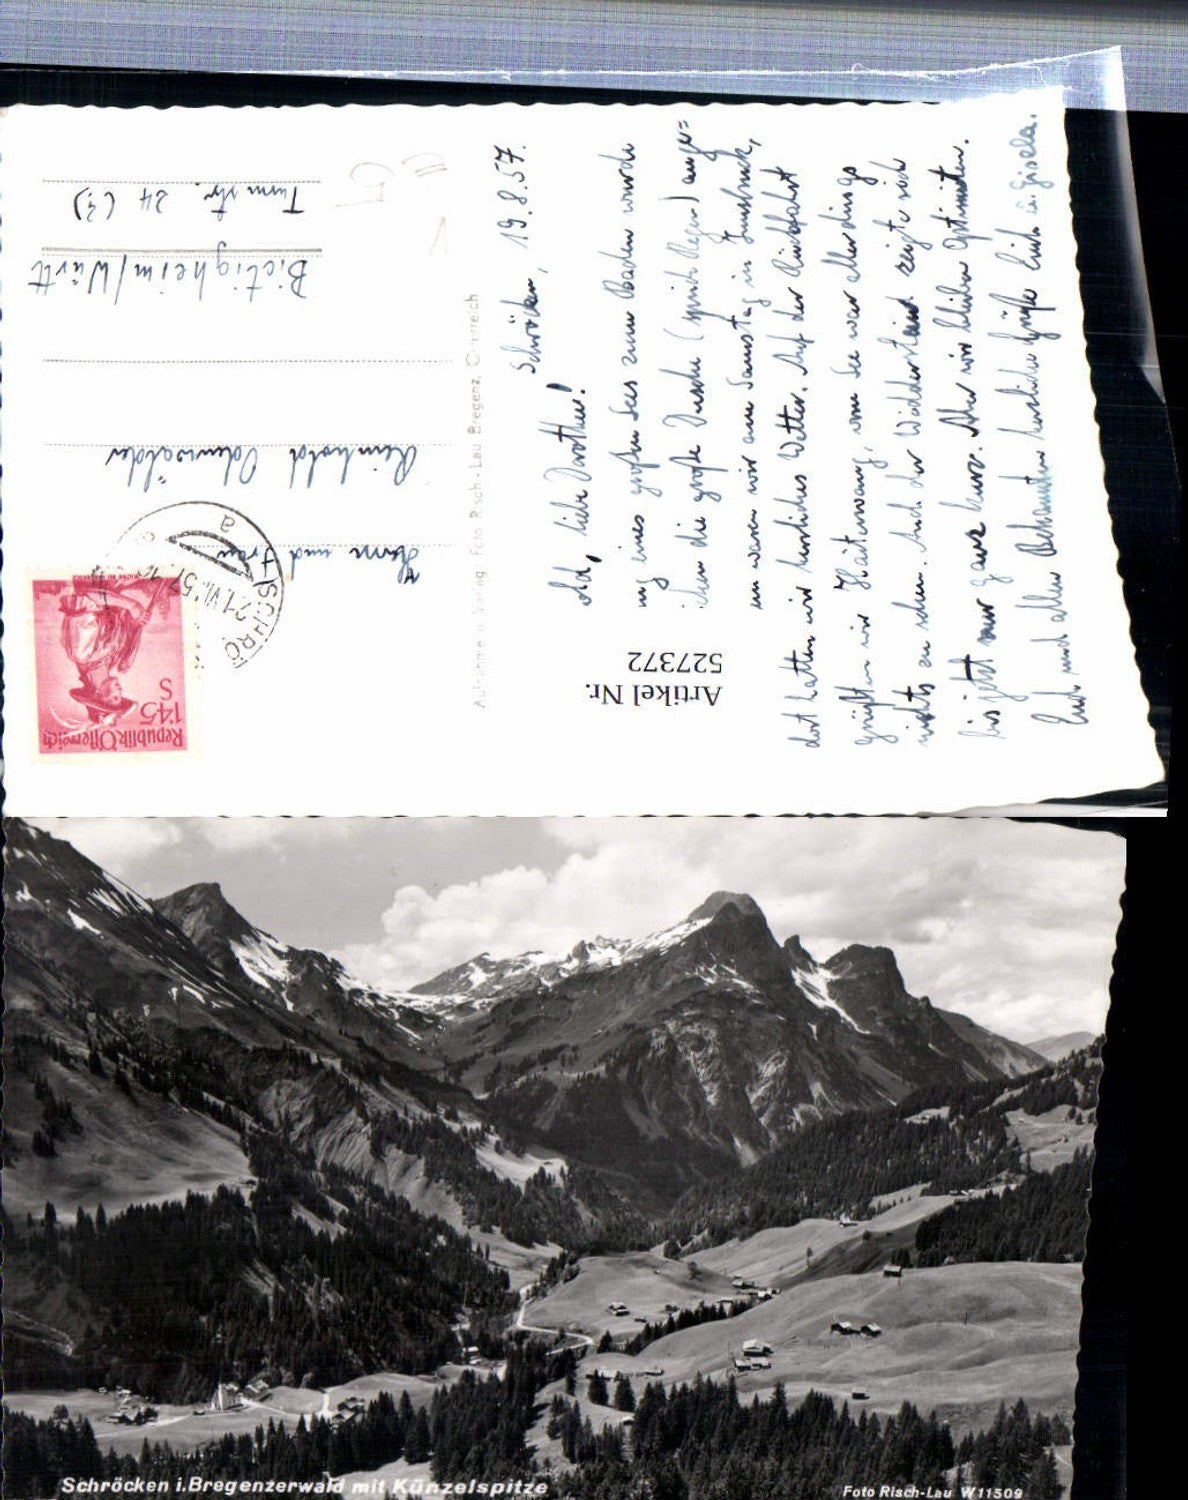 Schröcken, 19.8.57.
Ach, liebe Dorothee!
eines großen Sees zum Baden wurde
ihm die große Dusche (sprich Regen) ange=
waren wir am Samstag in Innsbruck,
dort hatten wir herrliches Wetter. Auf der Rückfahrt
grüßten wir Haiterwang, vom See war allerdings
nichts zu sehen. Auch der Widderstein zeigte sich
bis jetzt nur ganz kurz. Aber wir bleiben Optimisten.
Euch und allen Bekannten herzliche Grüße Eure Gisela.
Artikel Nr.
527372
Aufnahme u. Verlag Foto Risch-Lau Bregenz, Österreich
Republik Österreich
1'45
S
SCHRÖ
21.VIII.57
a
Herrn und Frau
Reinhold Odenwälder
Bietigheim/Württ
Turm str. 24 (?)
Schröcken i. Bregenzerwald mit Künzelspitze
Foto Risch-Lau W11509